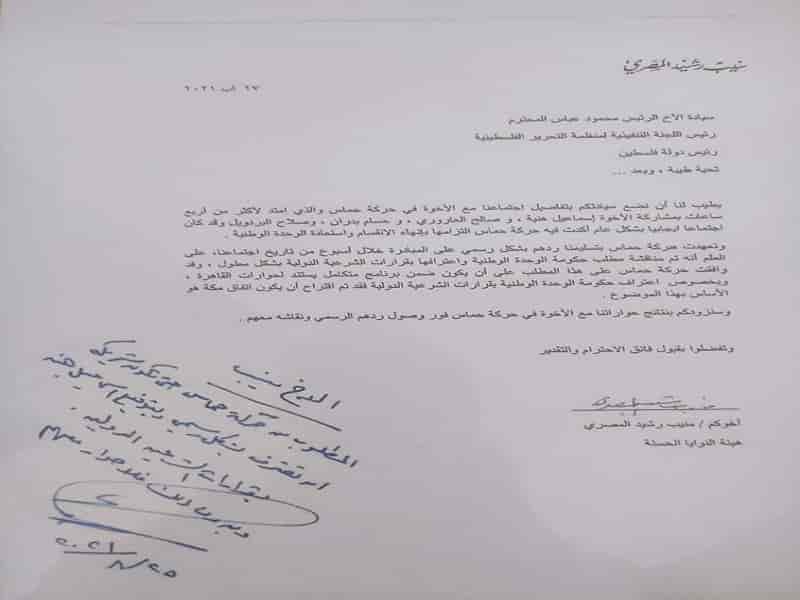 منيب رشيد المصري
١٧ آب ٢٠٢١
سيادة الأخ الرئيس محمود عباس المحترم
رئيس اللجنة التنفيذية لمنظمة التحرير الفلسطينية
رئيس دولة فلسطين
تحية طيبة ، وبعد ...
يطيب لنا أن نضع سيادتكم بتفاصيل اجتماعنا مع الأخوة في حركة حماس والذي امتد لأكثر من أربع
ساعات بمشاركة الأخوة إسماعيل هنية ، و صالح العاروري ، و حسام بدران ، وصلاح البردويل، وقد كان
اجتماعا ايجابيا بشكل عام أكدت فيه حركة حماس التزامها بإنهاء الانقسام واستعادة الوحدة الوطنية .
وتعهدت حركة حماس بتسليمنا ردهم بشكل رسمي على المبادرة خلال أسبوع من تاريخ اجتماعنا، على
العلم أنه تم مناقشة مطلب حكومة الوحدة الوطنية واعترافها بقرارات الشرعية الدولية بشكل مطول ، وقد
وافقت حركة حماس على هذا المطلب على أن يكون ضمن برنامج متكامل يستند لحوارات القاهرة ،
وبخصوص اعتراف حكومة الوحدة الوطنية بقرارات الشرعية الدولية فقد تم اقتراح أن يكون اتفاق مكة هو
الأساس بهذا الموضوع .
وسنزودكم بنتائج حواراتنا مع الأخوة في حركة حماس فور وصول ردهم الرسمي ونقاشه معهم .
وتفضلوا بقبول فائق الاحترام والتقدير
أخوكم / منيب رشيد المصري
هيئة النوايا الحسنة
الأخ منيب
المطلوب من حركة حماس حتى تكون شريك
ان تعترف بشكل رسمي وبتوقيع اسماعيل هنية
بقرارات الشرعية الدولية .
وبدون ذلك فلا حوار معهم
٢٠٢١/٨/٢٥